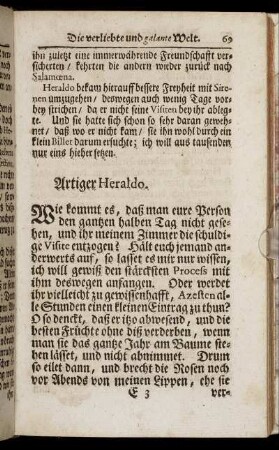 Die verliebte und galante Welt. 69
ihn zuletzt eine immerwährende Freundschafft ver-
sicherten / kehrten die andern wieder zurück nach
Salamœna.
Heraldo bekam hierauff bessere Freyheit mit Siro-
nen umzugehen / deswegen auch wenig Tage vor-
bey strichen / da er nicht seine Visiten bey ihr ableg-
te. Und sie hatte sich schon so sehr daran geweh-
net / daß wo er nicht kam / sie ihn wohl durch ein
klein Billet darum ersuchte; ich will aus tausenden
nur eins hieher setzen.
Artiger Heraldo.
Wie kommt es, daß man eure Person
den gantzen halben Tag nicht gese-
hen, und ihr meinem Zimmer die schuldi-
ge Visite entzogen? Hält euch jemand an-
derwerts auf, so lasset es mir nur wissen,
ich will gewiß den stärcksten Process mit
ihm deswegen anfangen. Oder werdet
ihr vielleicht zu gewissenhafft, Azesten al-
le Stunden einen kleinen Eintrag zu thun?
O so denckt, daß er itzo abwesend, und die
besten Früchte ohne diß verderben, wenn
man sie das gantze Jahr am Baume ste-
hen lässet, und nicht abnimmet. Drum
so eilet dann, und brecht die Rosen noch
vor Abends von meinen Lippen, ehe sie
E 3 ver-